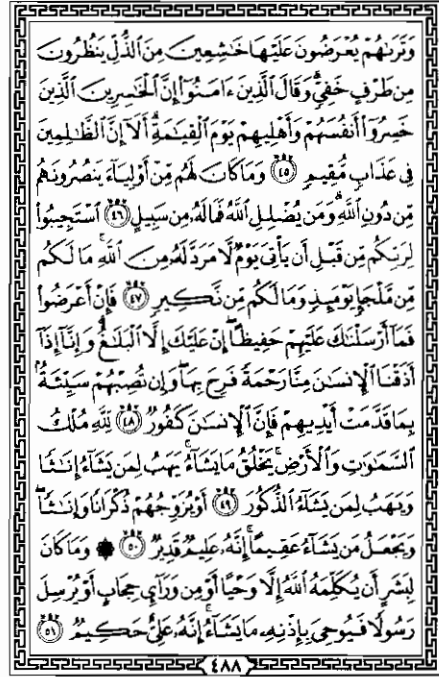 وَتَرَىٰهُمْ يُعْرَضُونَ عَلَيْهَا خَٰشِعِينَ مِنَ ٱلذُّلِّ يَنظُرُونَ
مِن طَرْفٍ خَفِىٍّ ۗ وَقَالَ ٱلَّذِينَ ءَامَنُوٓا۟ إِنَّ ٱلْخَٰسِرِينَ ٱلَّذِينَ
خَسِرُوٓا۟ أَنفُسَهُمْ وَأَهْلِيهِمْ يَوْمَ ٱلْقِيَٰمَةِ ۗ أَلَآ إِنَّ ٱلظَّٰلِمِينَ
فِى عَذَابٍ مُّقِيمٍ ﴿٤٥﴾ وَمَا كَانَ لَهُم مِّنْ أَوْلِيَآءَ يَنصُرُونَهُم
مِّن دُونِ ٱللَّهِ ۗ وَمَن يُضْلِلِ ٱللَّهُ فَمَا لَهُۥ مِن سَبِيلٍ ﴿٤٦﴾ ٱسْتَجِيبُوا۟
لِرَبِّكُم مِّن قَبْلِ أَن يَأْتِىَ يَوْمٌ لَّا مَرَدَّ لَهُۥ مِنَ ٱللَّهِ ۚ مَا لَكُم
مِّن مَّلْجَإٍ يَوْمَئِذٍ وَمَا لَكُم مِّن نَّكِيرٍ ﴿٤٧﴾ فَإِنْ أَعْرَضُوا۟
فَمَآ أَرْسَلْنَٰكَ عَلَيْهِمْ حَفِيظًا ۖ إِنْ عَلَيْكَ إِلَّا ٱلْبَلَٰغُ ۗ وَإِنَّآ إِذَآ
أَذَقْنَا ٱلْإِنسَٰنَ مِنَّا رَحْمَةً فَرِحَ بِهَا ۖ وَإِن تُصِبْهُمْ سَيِّئَةٌۢ
بِمَا قَدَّمَتْ أَيْدِيهِمْ فَإِنَّ ٱلْإِنسَٰنَ كَفُورٌ ﴿٤٨﴾ لِّلَّهِ مُلْكُ
ٱلسَّمَٰوَٰتِ وَٱلْأَرْضِ ۚ يَخْلُقُ مَا يَشَآءُ ۚ يَهَبُ لِمَن يَشَآءُ إِنَٰثًا
وَيَهَبُ لِمَن يَشَآءُ ٱلذُّكُورَ ﴿٤٩﴾ أَوْ يُزَوِّجُهُمْ ذُكْرَانًا وَإِنَٰثًا ۖ
وَيَجْعَلُ مَن يَشَآءُ عَقِيمًا ۚ إِنَّهُۥ عَلِيمٌ قَدِيرٌ ﴿٥٠﴾ ۞ وَمَا كَانَ
لِبَشَرٍ أَن يُكَلِّمَهُ ٱللَّهُ إِلَّا وَحْيًا أَوْ مِن وَرَآئِ حِجَابٍ أَوْ يُرْسِلَ
رَسُولًا فَيُوحِىَ بِإِذْنِهِۦ مَا يَشَآءُ ۚ إِنَّهُۥ عَلِىٌّ حَكِيمٌ ﴿٥١﴾
٤٨٨